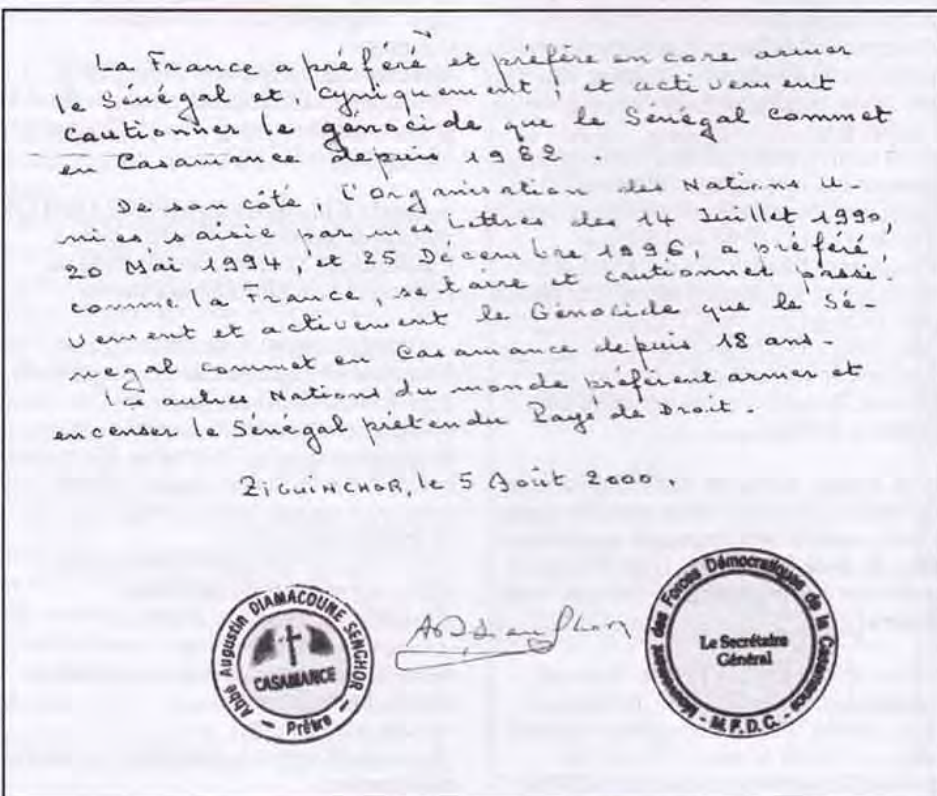 La France a préféré et préfère encore armer
le Sénégal et cyniquement, et activement
cautionner le génocide que le Sénégal commet
en Casamance depuis 1982.
De son côté, l'Organisation des Nations U
nies, saisie par mes Lettres des 14 Juillet 1990,
20 Mai 1994, et 25 Décembre 1996, a préféré,
comme la France, se taire et cautionner passi
vement et activement le Génocide que le Sé-
négal commet en Casamance depuis 18 ans.
Les autres Nations du monde préfèrent armer et
encenser le Sénégal prétendu Pays de Droit.
ZIGUINCHOR, le 5 Août 2000
Abbé Augustin DIAMACOUNE SENGHOR
CASAMANCE
- Prêtre -
Mouvement des Forces Démocratiques de la Casamance
Le Secrétaire
Général
- M.F.D.C. -